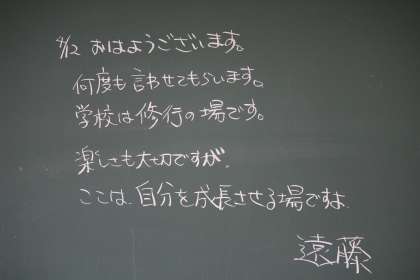 4/12 おはようございます。
何度も言わせてもらいます。
学校は修行の場です。
楽しさも大切ですが、
ここは、自分を成長させる場ですよ
遠藤